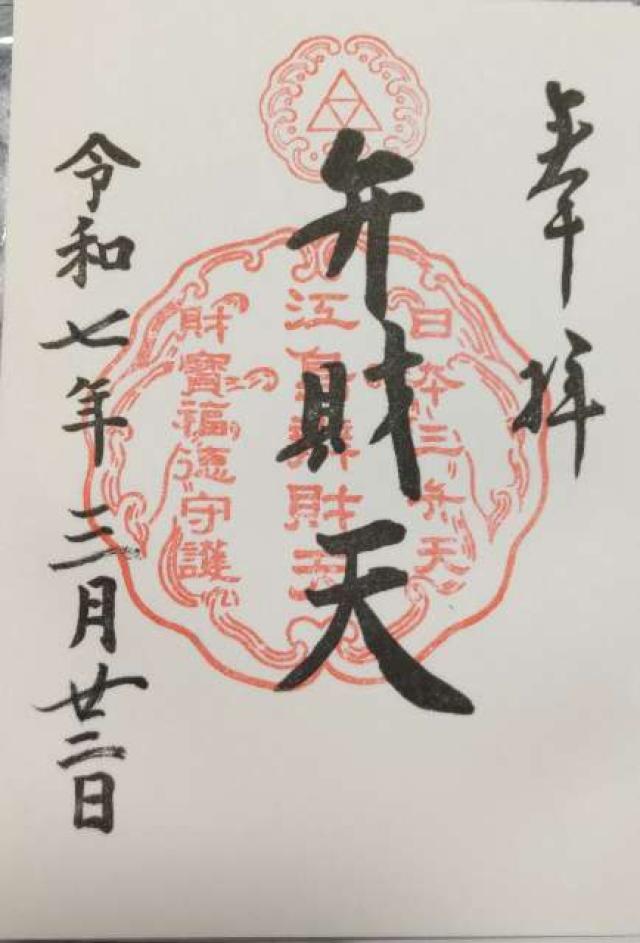 奉拝
日本三弁天
弁財天
江島辨財天
財寶福徳守護
令和七年三月廿二日